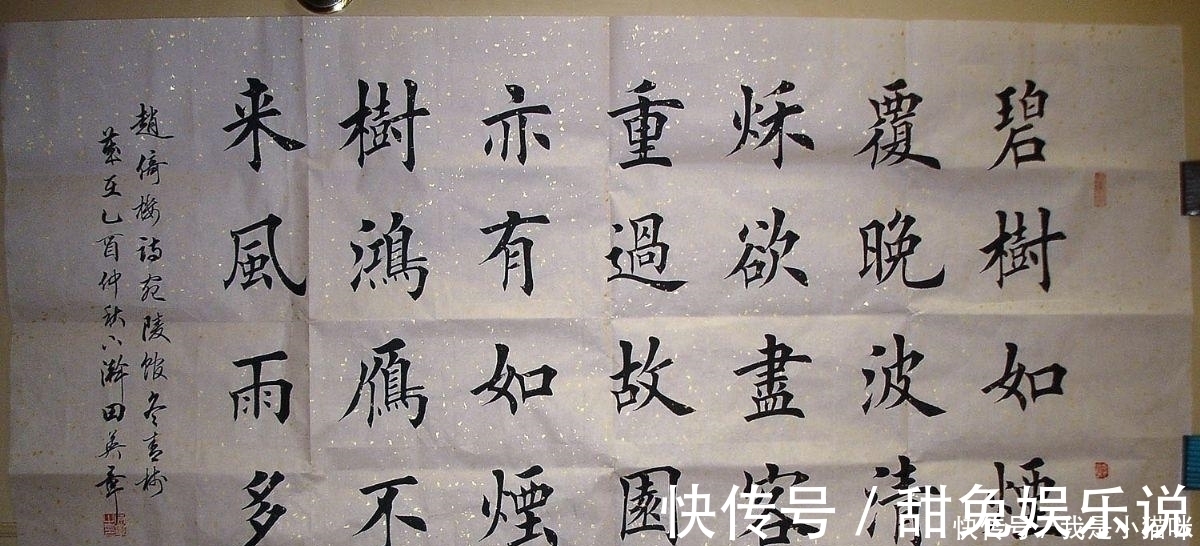 碧樹如煙
覆晚波清
秌欲盡客
重過故園
亦有如煙
樹鴻鴈不
来風雨多
趙倚樓詩宛陵館冬青樹
歲在乙酉仲秋下澣田英章
快传号 / 甜兔娱乐说
快传号 / 我是小猫咪